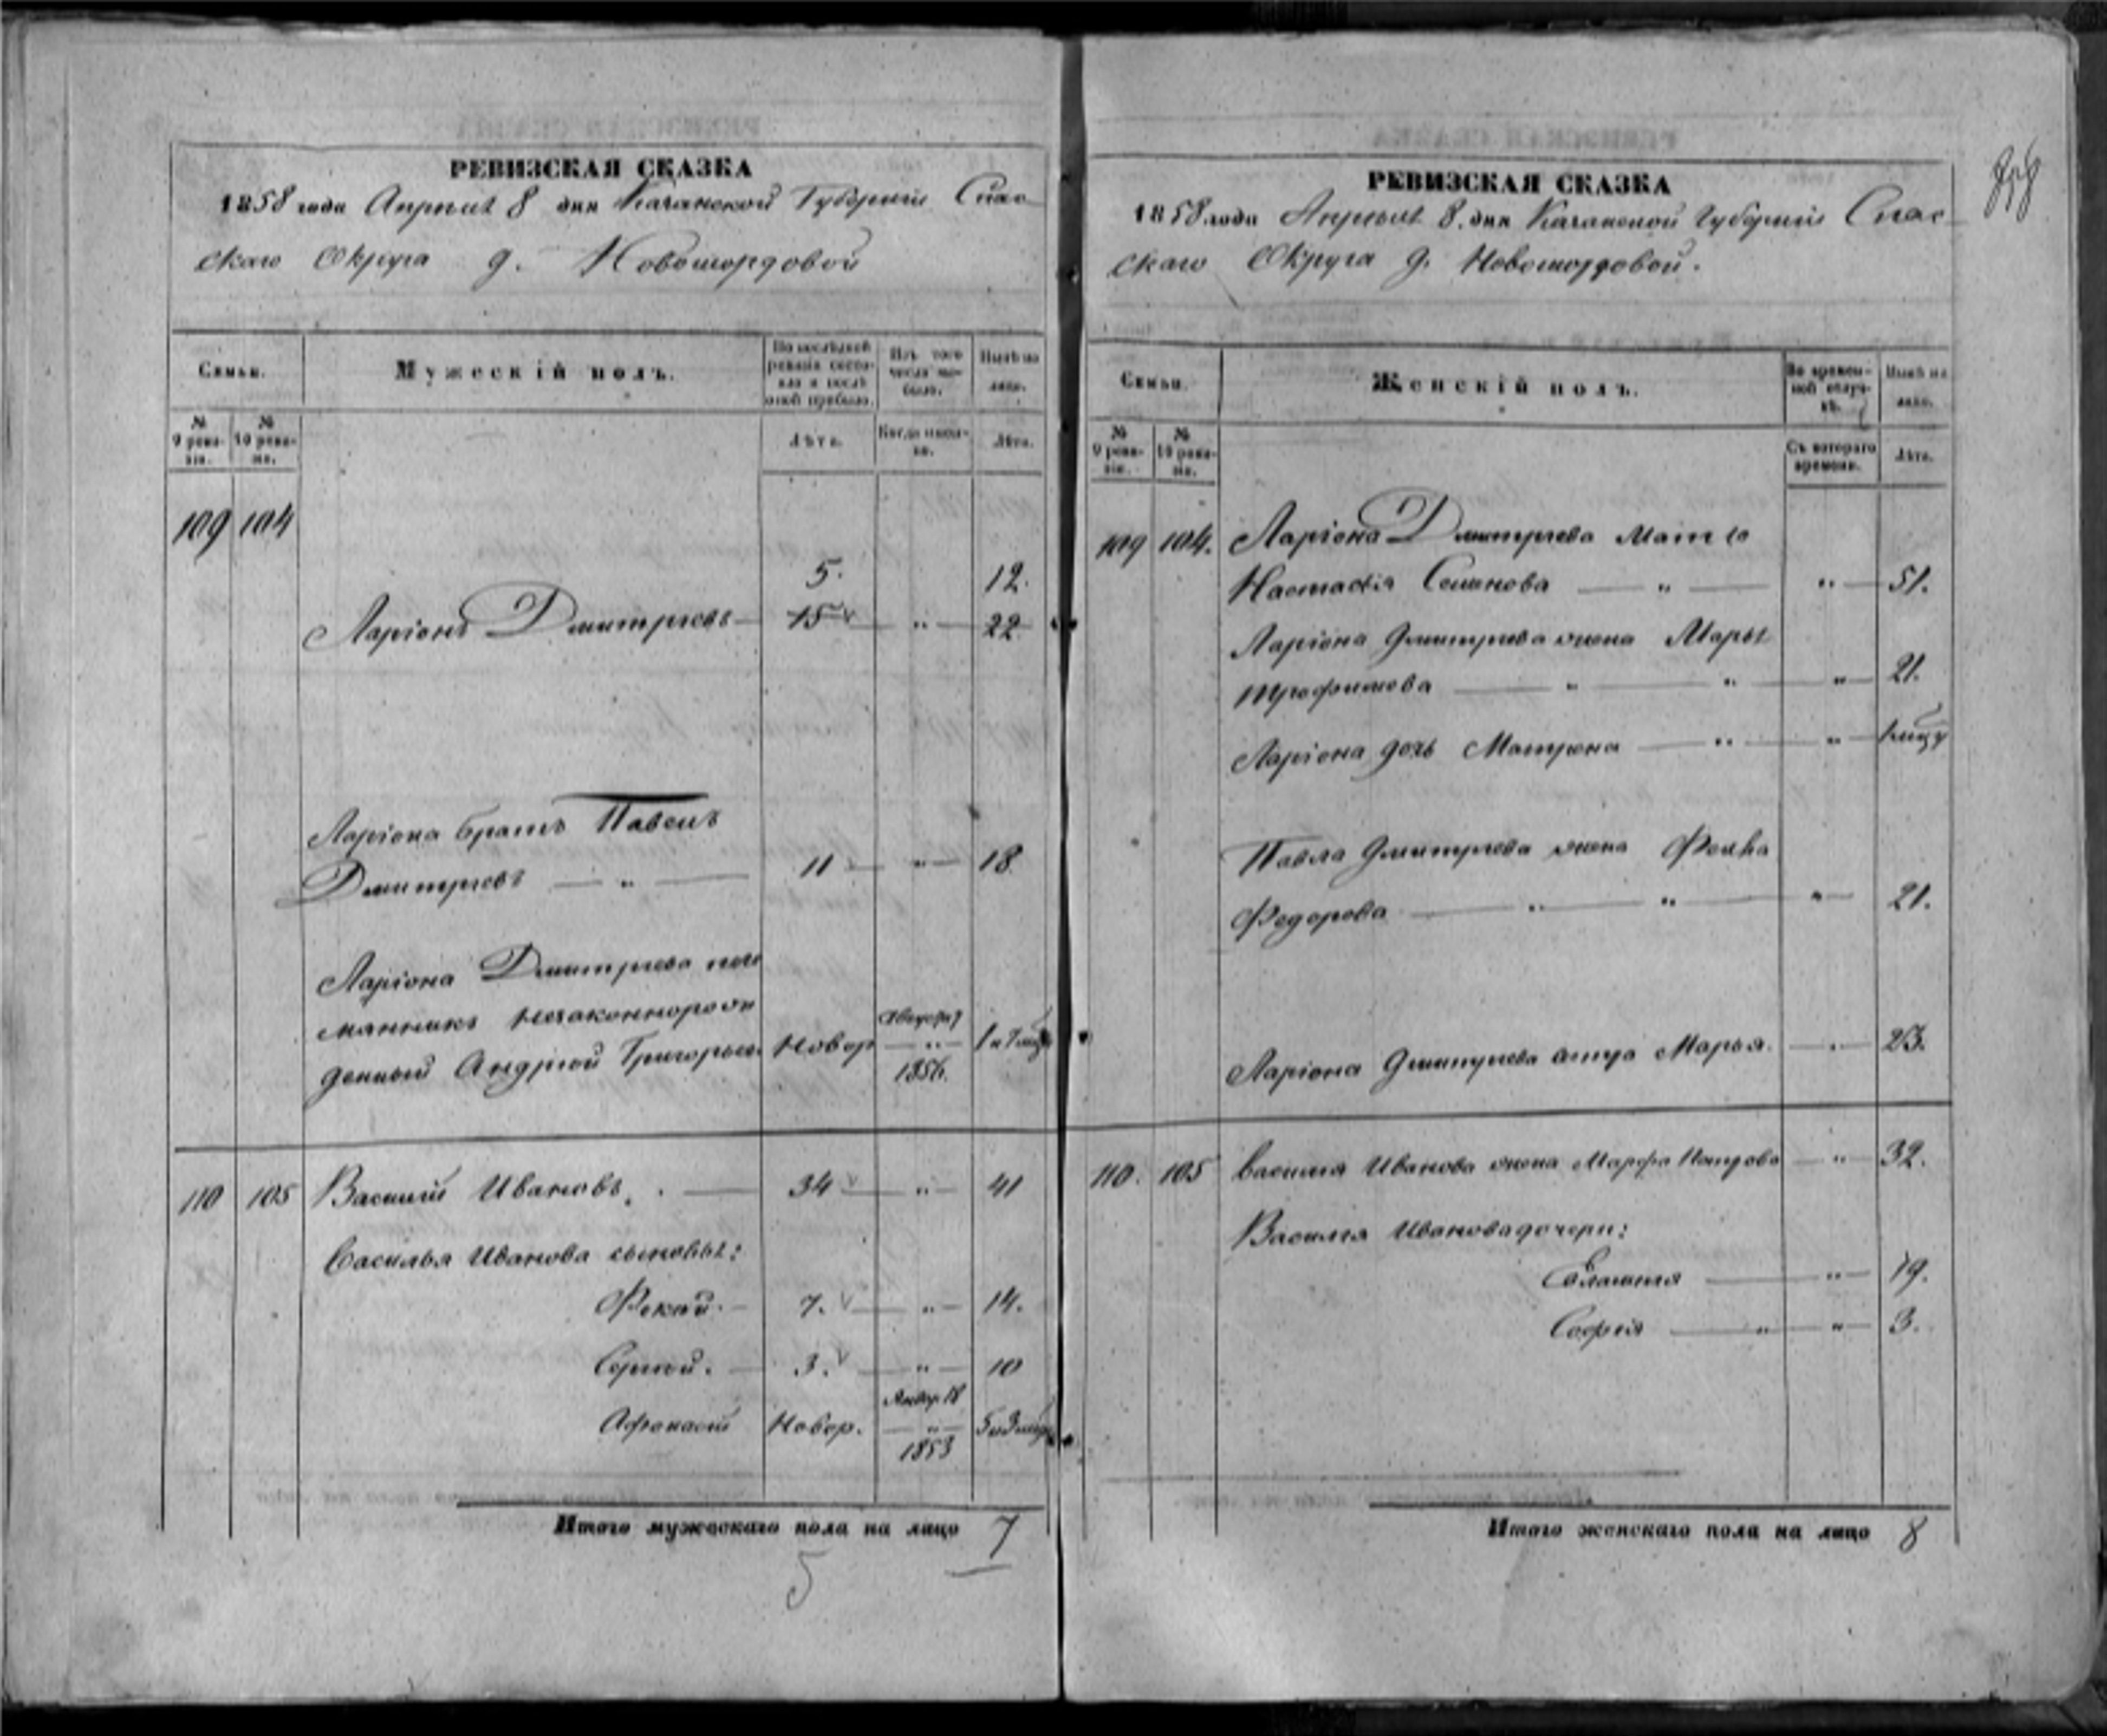 РЕВИЗСКАЯ СКАЗКА
1858 года Апрѣля 8 дня Казанской Губерніи Спас
скаго Округа д. Новомордовой
Семьи.
Мужескій полъ.
По послѣдней ревизіи состояло и послѣ оной прибыло.
Изъ того числа выбыло.
Нынѣ на лицо.
№ 9 ревизіи.
№ 10 ревизіи.
Лѣта.
Когда именно.
Лѣта.
109 104
5. 12.
Ларіонъ Дмитріевъ 15 „ 22
Ларіона братъ Павелъ
Дмитріевъ „ 11 „ 18
Ларіона Дмитріева пле
мянникъ незаконнорож
денный Андрей Григорьевъ Новор Августа 7 „ 1856.
110 105 Василій Ивановъ. 34 „ 41
Василья Иванова сыновья:
7. „ 14.
Сергей. 3. „ 10
Афонасій Новор. Январ. 18 „ 1853
Итого мужескаго пола на лицо 7
5
РЕВИЗСКАЯ СКАЗКА
1858 года Апрѣля 8. дня Казанской Губерніи Спас
скаго Округа д. Новомордовой.
Семьи.
Женскій полъ.
Во временной отлучкѣ.
Нынѣ на лицо.
№ 9 ревизіи.
№ 10 ревизіи.
Съ котораго времени.
Лѣта.
109 104. Ларіона Дмитріева мать
Настасія Семенова „ „ 51.
Ларіона Дмитріева жена Марья
Трофимова „ „ „ 21.
Ларіона дочь Матрона „ „
Павла Дмитріева жена
Федорова „ „ „ 21.
Ларіона Дмитріева сестра Марья. „ 23.
110. 105 Василія Иванова жена Марфа Петрова „ 32.
Василія Иванова дочери:
„ 19.
Софія „ „ 3.
Итого женскаго пола на лицо 8